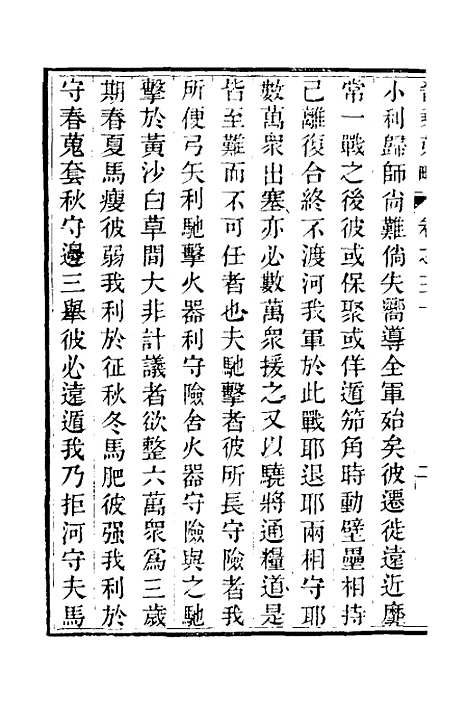 小利歸師尙難倘失嚮導全軍殆矣彼遷徙遠近靡
常一戰之後彼或保聚或佯遁笳角時動壁壘相持
已離復合終不渡河我軍於此戰耶退耶兩相守耶
數萬衆出塞亦必數萬衆援之又以驍將通糧道是
皆至難而不可任者也夫馳擊者彼所長守險者我
所便弓矢利馳擊火器利守險舍火器守險與之馳
擊於黃沙白草間大非計議者欲整六萬衆爲三歲
期春夏馬瘦彼弱我利於征秋冬馬肥彼强我利於
守春蒐套秋守邊三舉彼必遠遁我乃拒河守夫馬